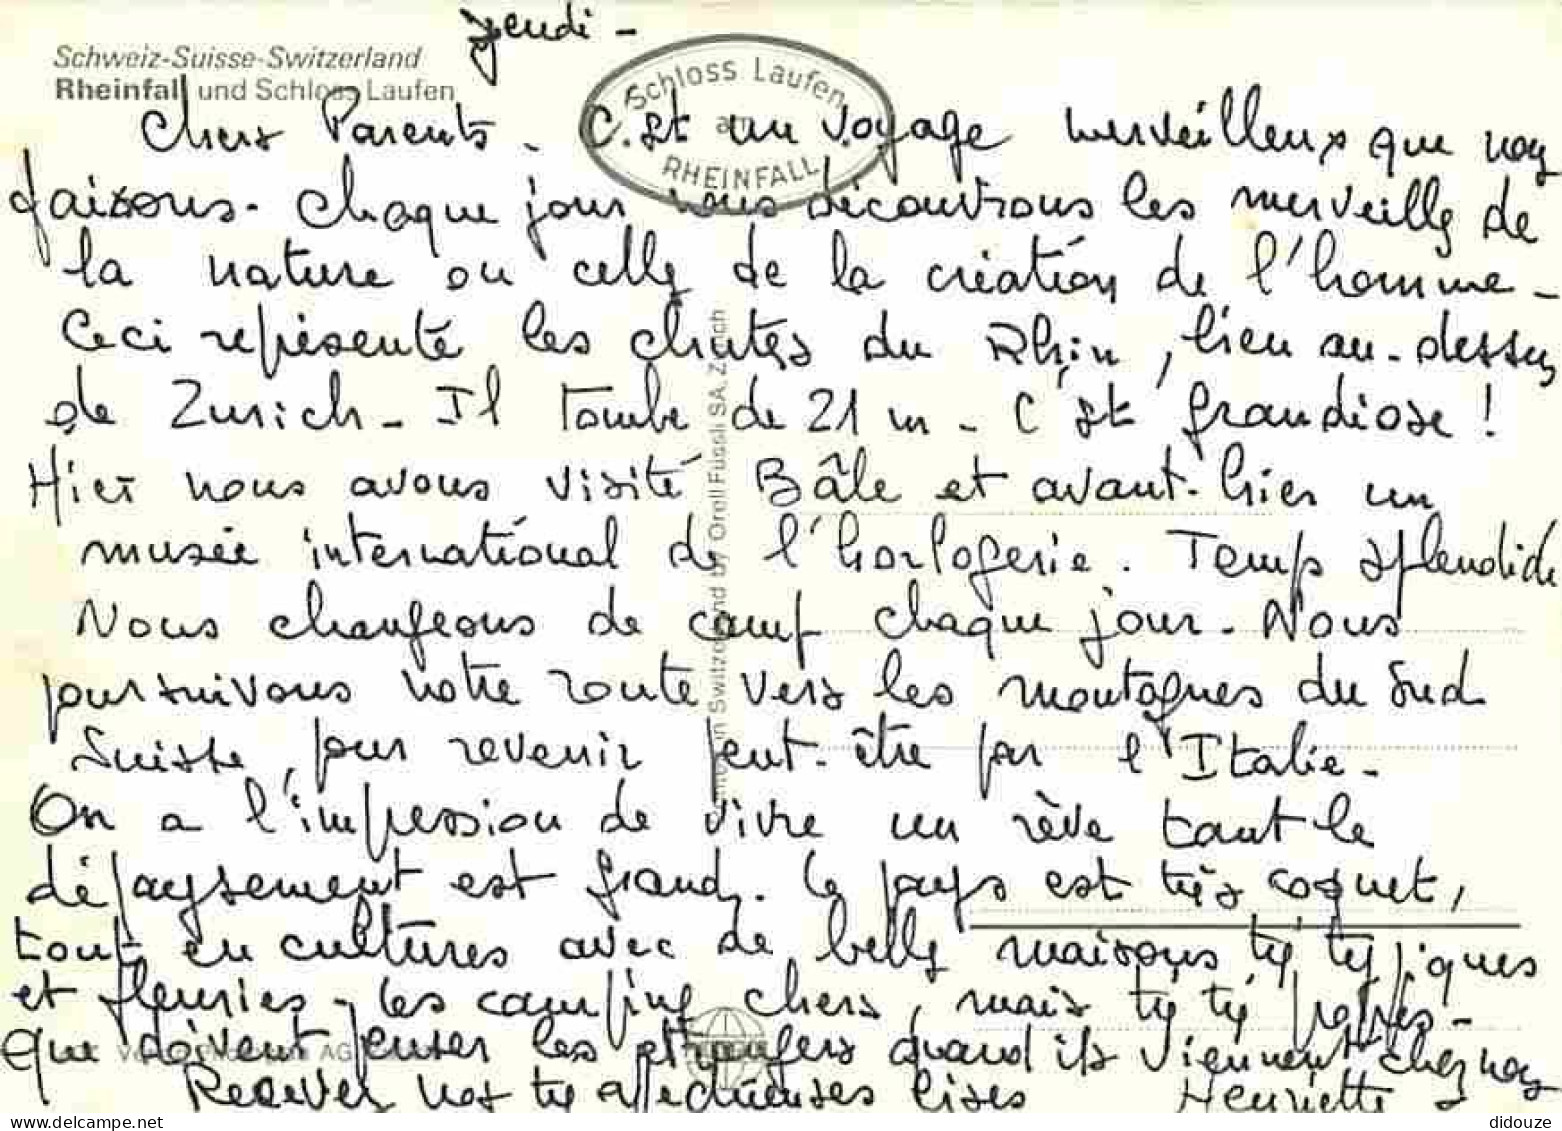 Jeudi -
Schweiz-Suisse-Switzerland
Rheinfall und Schloss Laufen
Schloss Laufen
am
RHEINFALL
Chers Parents - C'est un voyage merveilleux que nous
faisons - Chaque jour nous découvrons les merveilles de
la nature ou celles de la création de l'homme -
Ceci représente les chutes du Rhin, lieu au-dessus
de Zurich - Il tombe de 21 m - C'est grandiose !
Hier nous avons visité Bâle et avant-hier un
musée international de l'horlogerie. Temps splendide
Nous changeons de camp chaque jour - Nous
poursuivons notre route vers les montagnes du Sud
Suisse, pour revenir peut-être par l'Italie -
On a l'impression de vivre un rêve tant le
dépaysement est grand. Le pays est très coquet,
tout en cultures avec de belles maisons ty typiques
et fleuries - les camping chers, mais ts ts propres -
Que doivent penser les étrangers quand ils viennent chez nous
Recevez nos ts affectueuses bises Henriette
in Switzerland by Orell Füssli SA, Zürich
AG
didouze